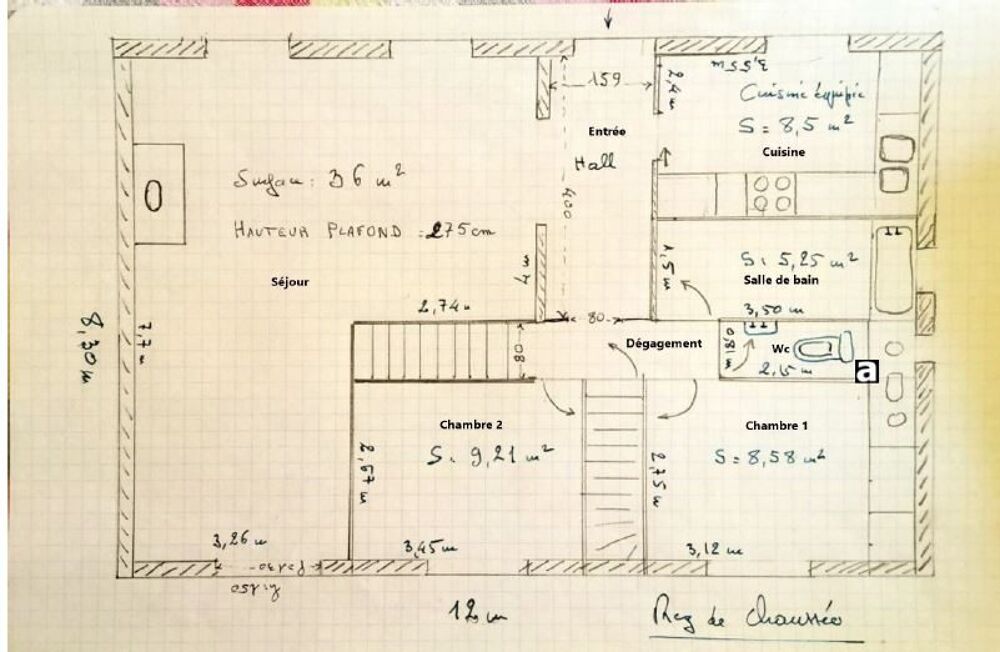 159
2,4 m
3,55 m
Cuisine équipée
S = 8,5 m²
Entrée
Hall
Cuisine
Surface : 36 m²
400
HAUTEUR PLAFOND : 275 cm
Séjour
4 m
1,5 m
S : 5,25 m²
Salle de bain
2,74 m
3,50 m
80
8,30 m
7,7 m
80
Dégagement
0,81 m
Wc
2,15 m
a
Chambre 2
S : 9,21 m²
Chambre 1
S = 8,58 m²
2,67 m
2,75 m
3,26 m
3,45 m
3,12 m
12 m
Rez de Chaussée